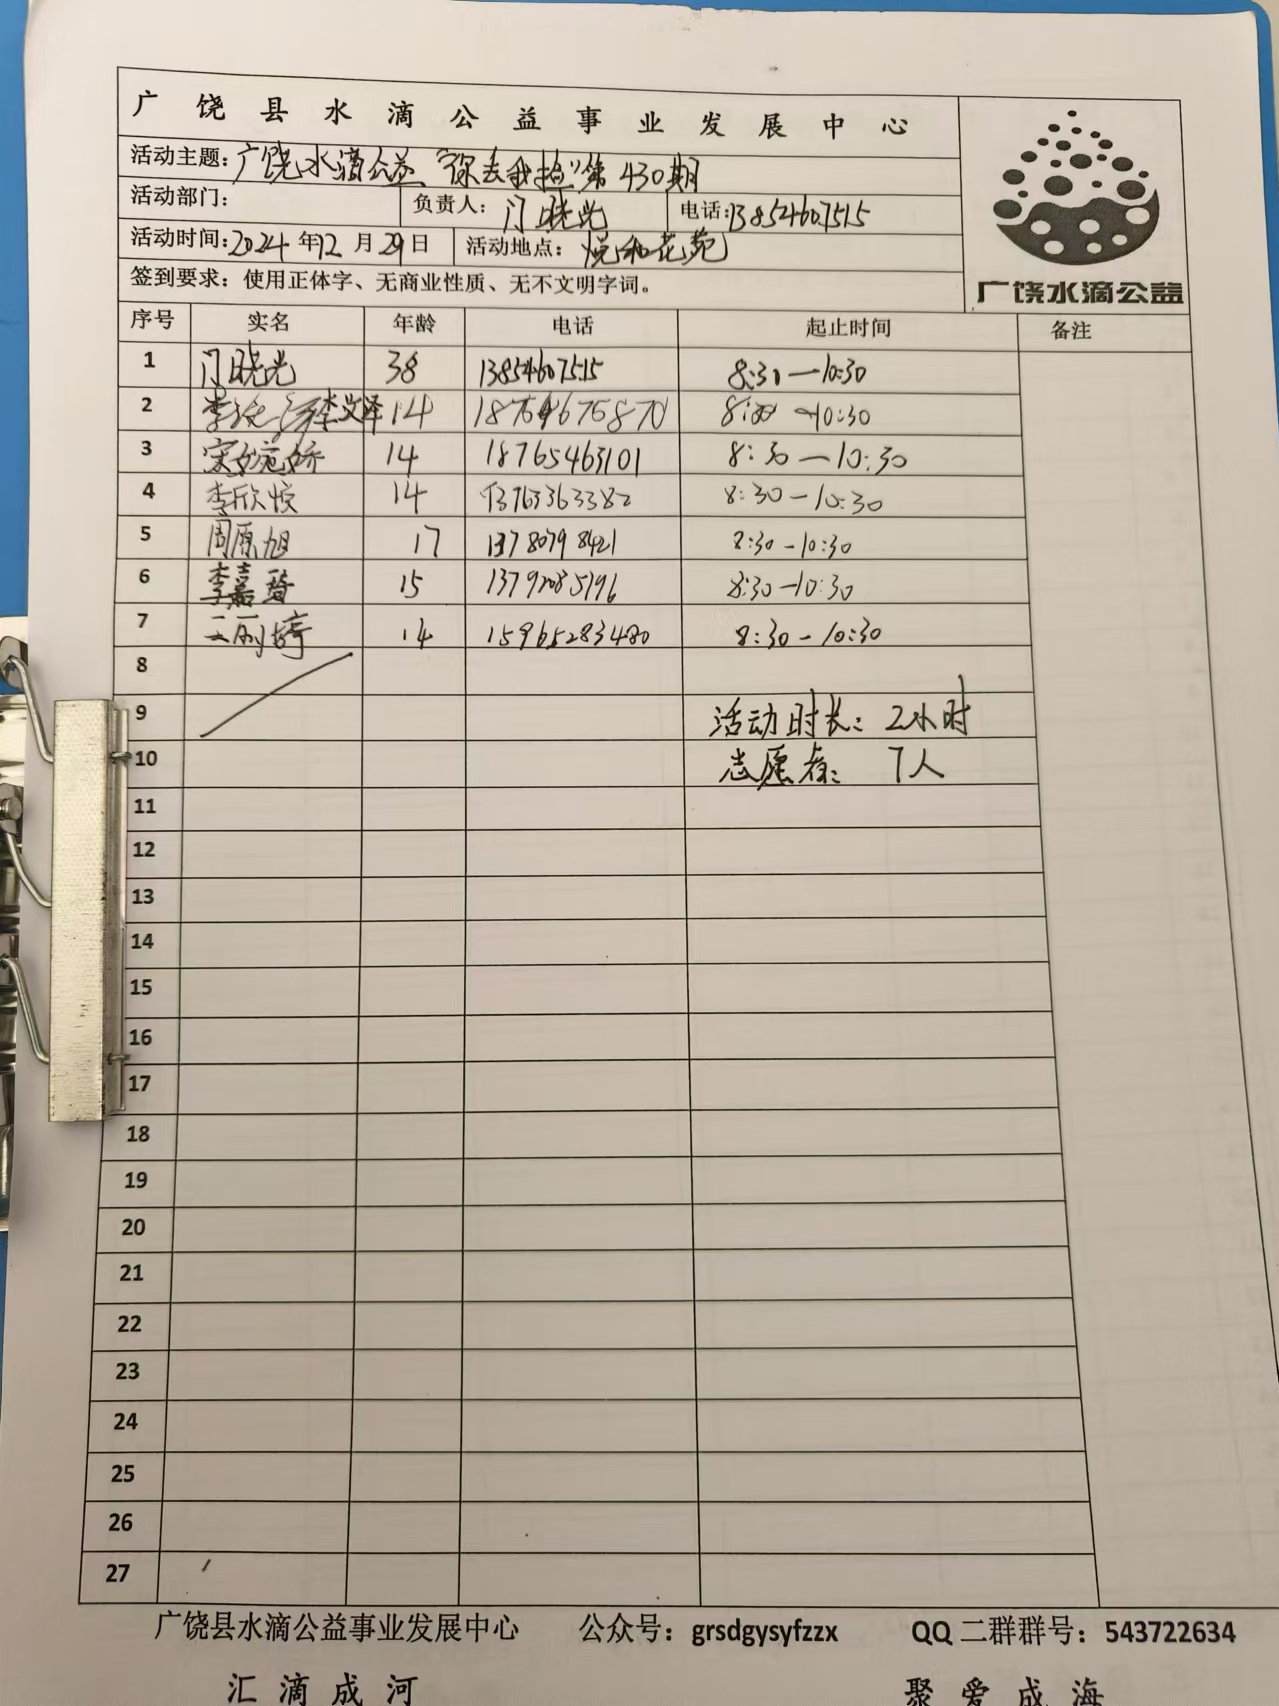 广饶县水滴公益事业发展中心
活动主题：广饶水滴公益“你丢我捡”第430期
活动部门： 负责人：门晓光 电话：13854607515
活动时间：2024年12月29日 活动地点：悦和花苑
签到要求：使用正体字、无商业性质、无不文明字词。
广饶水滴公益
序号 实名 年龄 电话 起止时间 备注
1 门晓光 38 13854607515 8:30—10:30
2 李文泽 14 10:30
3 宋婉娇 14 18765463101 8:30—10:30
4 李欣悦 14 13763363382 8:30—10:30
5 周原旭 17 13780798421 8:30-10:30
6 李嘉琦 15 8:30-10:30
7 14 15965283480 8:30-10:30
8
9 活动时长：2小时
10 志愿者：7人
11
12
13
14
15
16
17
18
19
20
21
22
23
24
25
26
27
广饶县水滴公益事业发展中心 公众号：grsdgysyfzzx QQ二群群号：543722634
汇滴成河 聚爱成海